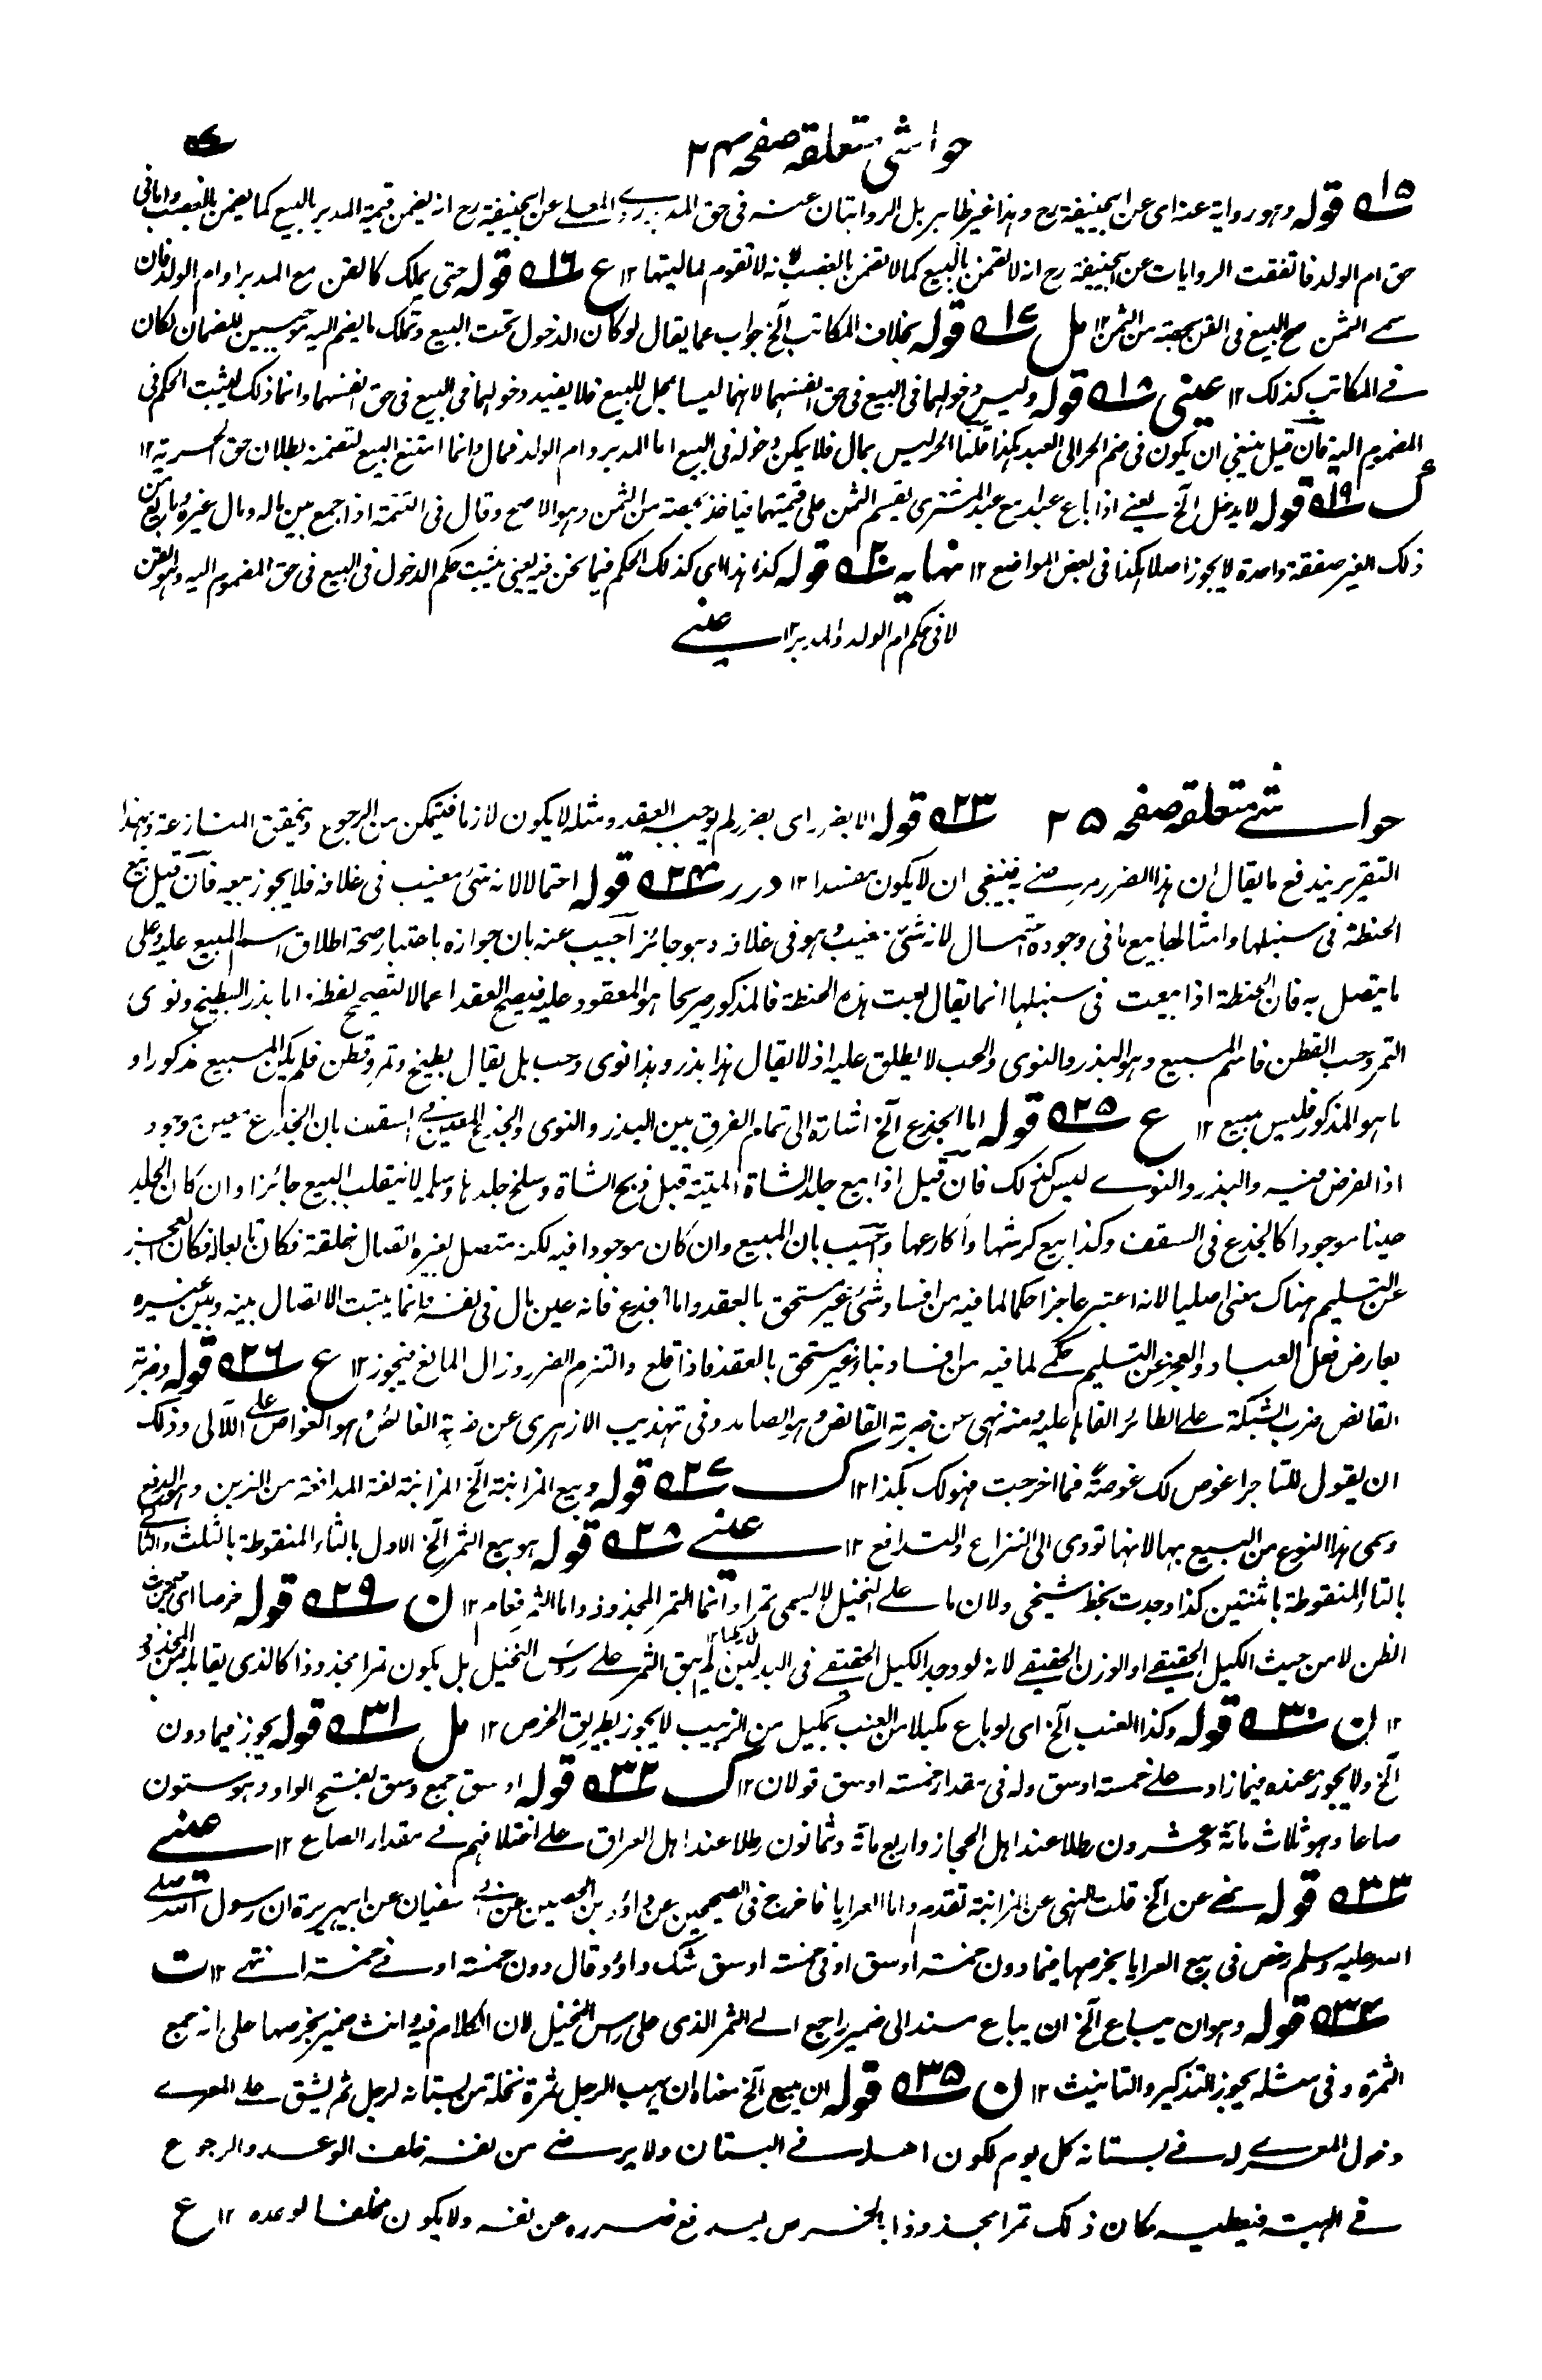 حواشی متعلقہ صفحہ ۲۴
۱۵ قوله وهو رواية عنه اى عن ابيحنيفة رح وهذا غير ظاهر بل الروايتان عنه فى حق المدبر روى المعلى عن ابيحنيفة رح انه يضمن قيمة المدبر بالبيع كما يضمن بالغصب واما فى
حق ام الولد فاتفقت الروايات عن ابيحنيفة رح انه لا تضمن بالبيع كما لا تضمن بالغصب لانه لا تقوم لماليتها ١٢ ع ۱۶ قوله حتى يملك كالقن مع المدبر او ام الولد فان
سمى الثمن صح البيع فى القن بحصته من الثمن ١٢ مل ۱۷ قوله بخلاف المكاتب الخ جواب عما يقال لو كان الدخول تحت البيع وتملك ما يضم اليه موجبين للضمان لكان
فى المكاتب كذلك ١٢ عينى ۱۸ قوله وليس دخولهما فى البيع فى حق انفسهما لانهما ليسا بمحل للبيع فلا يفيد دخولهما فى البيع فى حق انفسهما وانما ذلك ليثبت الحكم فى
المضموم اليه فان قيل ينبغى ان يكون فى ضم الحر الى العبد هكذا قلنا الحر ليس بمال فلا يمكن دخوله فى البيع اما المدبر وام الولد فمال وانما امتنع البيع لتضمنه بطلان حق الحرية ١٢
ك ۱۹ قوله لا يدخل الخ يعنى اذا باع عبدا مع عبد المشترى يقسم الثمن على قيمتهما فياخذ بحصته من الثمن وهو الاصح وقال فى التتمة اذا جمع بين ماله ومال غيره وباع من
ذلك الغير صفقة واحدة لا يجوز اصلا هكذا فى بعض المواضع ١٢ نهايه ۲۰ قوله كذا هذا اى كذلك الحكم فيما نحن فيه يعنى يثبت حكم الدخول فى البيع فى حق المضموم اليه وهو القن
لا فى حكم ام الولد والمدبر ١٢ عينى
حواشى متعلقہ صفحہ ۲۵ ۲۳ قوله الا بضرر اى بضرر لم يوجبه العقد ومثله لا يكون لازما فيتمكن من الرجوع ويتحقق المنازعة وبهذا
التقرير يندفع ما يقال ان هذا الضرر مرضى به فينبغى ان لا يكون مفسدا ١٢ درر ۲۴ قوله احتمالا لانه شئ مغيب فى غلافه فلا يجوز بيعه فان قيل بيع
الحنطة فى سنبلها وامثالها بيع ما فى وجوده احتمال لانه شئ مغيب وهو فى غلافه وهو جائز اجيب عنه بان جوازه باعتبار صحة اطلاق اسم المبيع عليه وعلى
ما يتصل به فان الحنطة اذا بيعت فى سنبلها انما يقال بعت هذه الحنطة فالمذكور صريحا هو المعقود عليه فيصح العقد اعمالا لتصحيح لفظه اما بذر البطيخ ونوى
التمر وحب القطن فاسم المبيع وهو البذر والنوى والحب لا يطلق عليه اذ لا يقال هذا بذر وهذا نوى وحب بل يقال بطيخ وتمر وقطن فلم يكن المبيع مذكورا و
ما هو المذكور فليس بمبيع ١٢ ع ۲۵ قوله اما الجذع الخ اشارة الى تمام الفرق بين البذر والنوى والجذع المعين فى السقف بان الجذع معين موجود
اذ الفرض فيه والبذر والنوى ليس كذلك فان قيل اذا بيع جلد الشاة المتية قبل ذبح الشاة وسلخ جلدها وسلمه لا ينقلب البيع جائزا وان كان الجلد
عينا موجودا كالجذع فى السقف وكذا بيع كرشها واكارعها واجيب بان المبيع وان كان موجودا فيه لكنه متصل بغيره اتصال خلقة فكان تابعا له فكان العجز
عن التسليم هناك معنى اصليا لانه اعتبر عاجزا حكما لما فيه من افساد شئ غير مستحق بالعقد واما الجذع فانه عين مال فى نفسه وانما يثبت الاتصال بينه وبين غيره
بعارض فعل العباد والعجز عن التسليم حكمى لما فيه من افساد بناء غير مستحق بالعقد فاذا قلع والتزم الضرر زال المانع فيجوز ١٢ ع ۲۶ قوله وضربة
القانص ضرب الشبكة على الطائر القاها عليه ومنه نهى عن ضربة القانص وهو الصائد وفى تهذيب الازهرى عن ضربة الغائص وهو الغواص على اللآلى وذلك
ان يقول للتاجر اغوص لك غوصة فما اخرجت فهو لك بكذا ١٢ ك ۲۷ قوله وبيع المزابنة الخ المزابنة لغة المدافعة من الزبن وهو الدفع
وسمى هذا النوع من البيع بها لانها تودى الى النزاع والتدافع ١٢ عينى ۲۸ قوله هو بيع الثمر الخ الاول بالثاء المنقوطة بالثلث والثانى
بالتاء المنقوطة باثنتين كذا وجدت بخط شيخى ولان ما على النخيل لا يسمى تمرا وانما التمر المجذوذ واما الثمر فعام ١٢ ن ۲۹ قوله خرصا اى من حيث
الظن لا من حيث الكيل الحقيقى او الوزن الحقيقى لانه لو وجد الكيل الحقيقى فى البدلين لم يبق الثمر على رؤس النخيل بل يكون تمرا مجذوذا كالذى يقابله من المجذوذ
١٢ ن ۳۰ قوله وكذا العنب الخ اى لو باع مكيلا من العنب بمكيل من الزبيب لا يجوز بطريق الخرص ١٢ مل ۳۱ قوله يجوز فيما دون
الخ ولا يجوز عنده فيما زاد على خمسة اوسق وله فى مقدار خمسة اوسق قولان ١٢ ك ۳۲ قوله اوسق جمع وسق بفتح الواو وهو ستون
صاعا وهو ثلاث مائة وعشرون رطلا عند اهل الحجاز واربع مائة وثمانون رطلا عند اهل العراق على اختلافهم فى مقدار الصاع ١٢ عينى
۳۳ قوله نهى عن الخ قلت النهى عن المزابنة تقدم واما العرايا فاخرج فى الصحيحين عن داؤد بن الحصين عن ابى سفيان عن ابيهريرة ان رسول الله صلى
الله عليه وسلم رخص فى بيع العرايا بخرصها فيما دون خمسة اوسق او فى خمسة اوسق شك داؤد قال دون خمسة او فى خمسة انتهى ١٢ ت
۳۴ قوله وهو ان يباع الخ ان يباع مسند الى ضمير راجع الى الثمر الذى على رس النخيل لان الكلام فيه وانث ضمير بخرصها على انه جمع
الثمرة وفى مثله يجوز التذكير والتانيث ١٢ ن ۳۵ قوله ان يبيع الخ معناه ان يهب الرجل ثمرة نخلة من بستانه لرجل ثم يشق على المعرى
دخول المعرى له فى بستانه كل يوم لكون اهله فى البستان ولا يرضى من نفسه خلف الوعد والرجوع
فى الهبة فيعطيه مكان ذلك تمرا مجذوذا بالخرص ليدفع ضرره عن نفسه ولا يكون مخلفا لوعده ١٢ ع